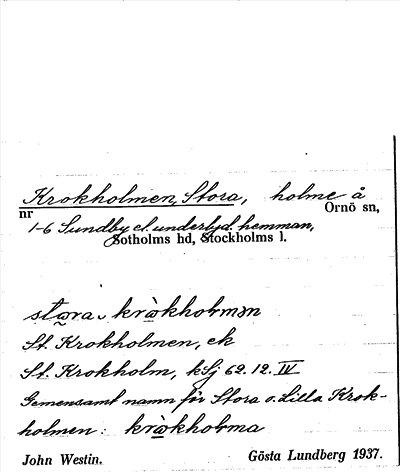 Krokholmen, Stora, holme å
nr Ornö sn,
1-6 Sundby el. underlyd. hemman,
Sotholms hd, Stockholms l.
stꞷra krὰkholmən
St. Krokholmen, ek
St. Krokholm, kSj 62. 12. IV
Gemensamt namn för Stora o. Lilla Krok-
holmen: krὰkholma
John Westin. Gösta Lundberg 1937.